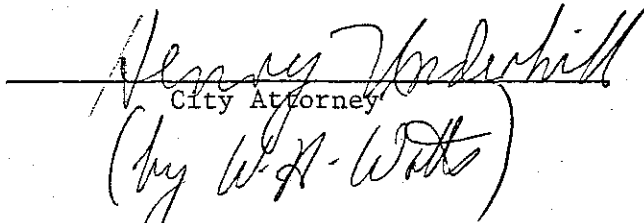 Henry Underhill
City Attorney
(by W. H. Watts)